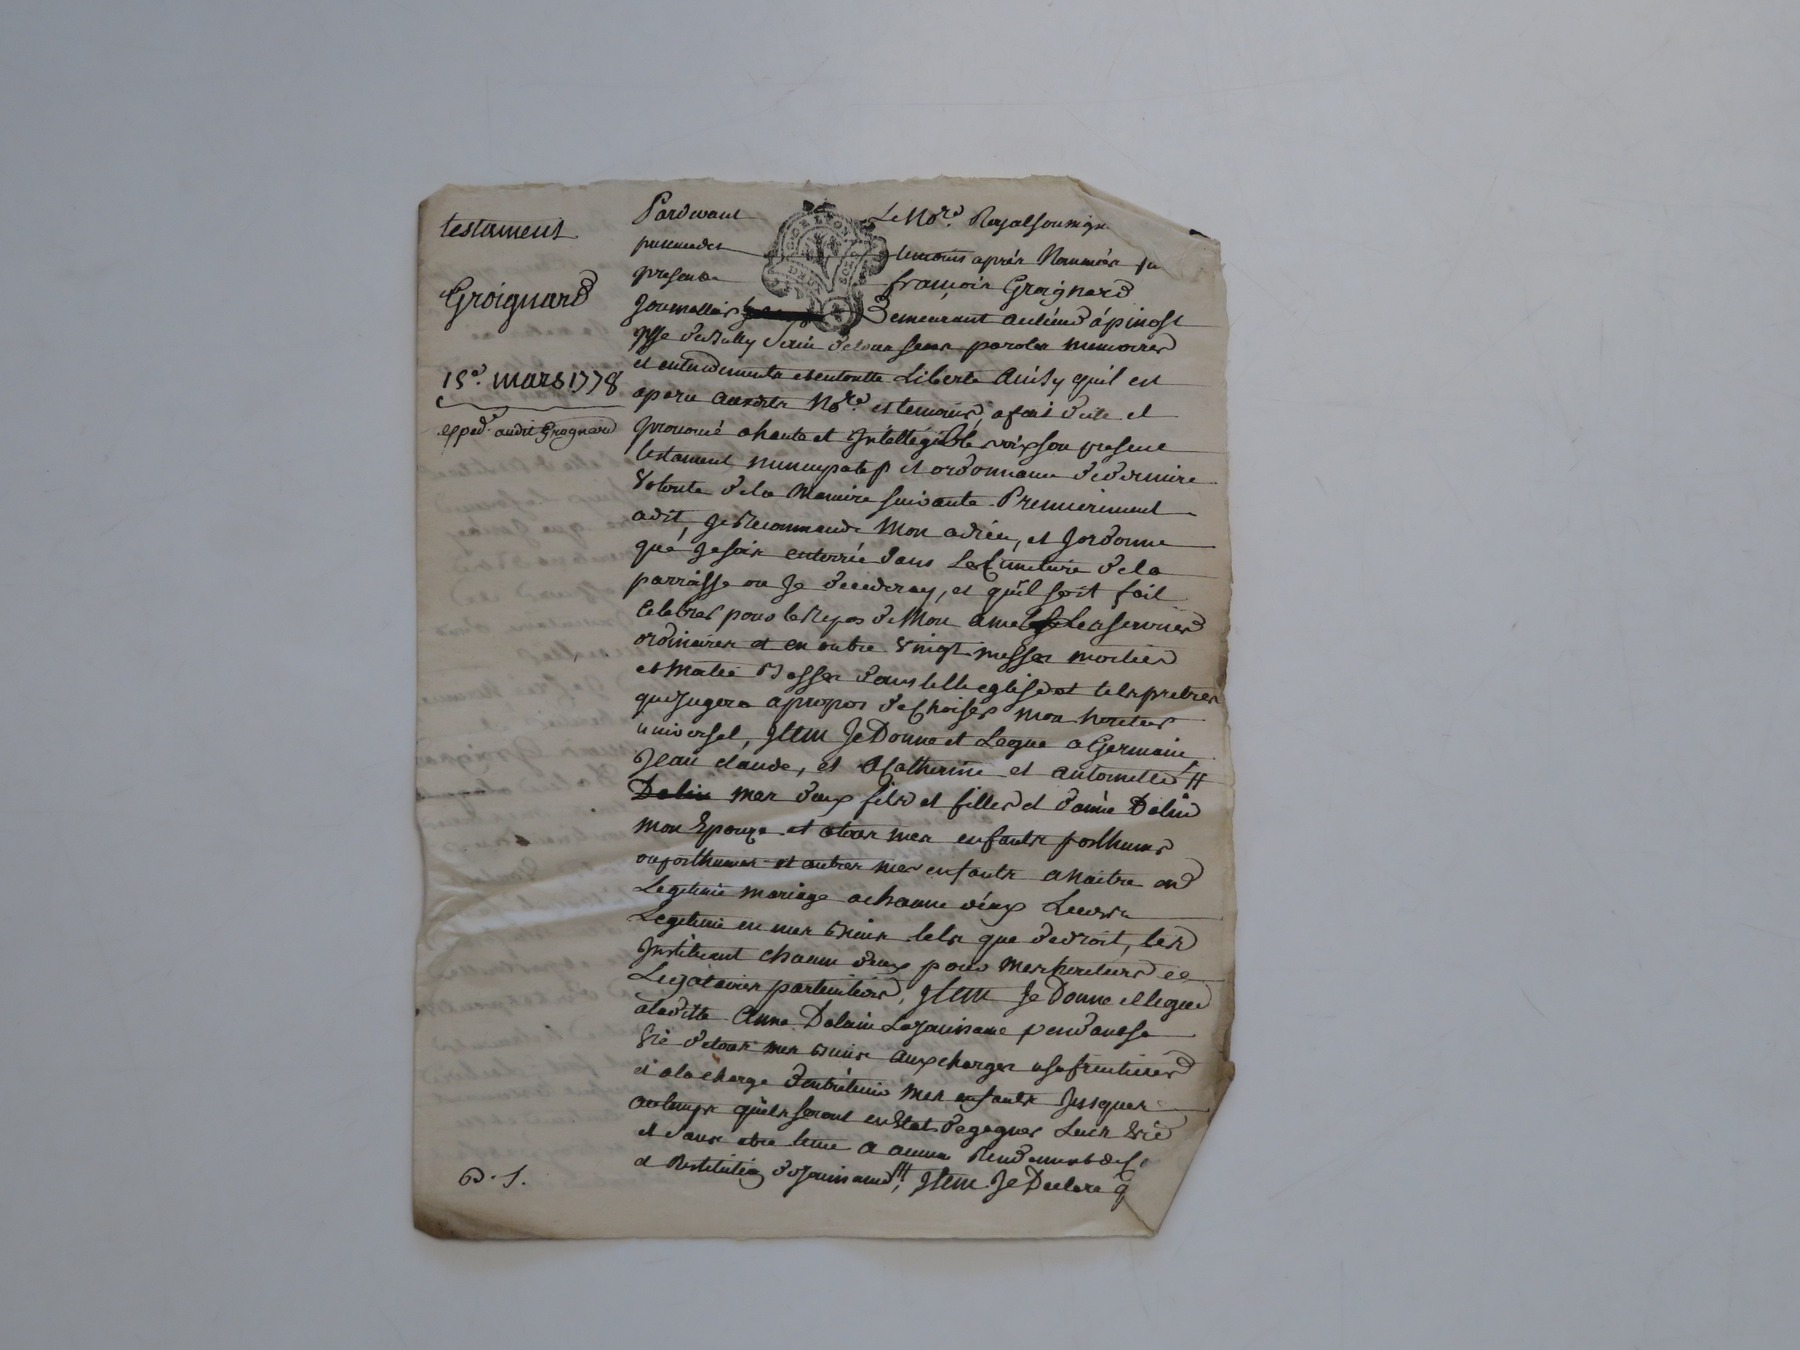 testament
Groignard
15e. mars 1778
exped. audit Grognard
Pardevant Le Nore. Royal soussigné
presence des temoins aprés Nommés fu
presente françois Groignard
Journallier Demeurant au lieud d'épinost
psse de Bully Sain de tous sens paroles memoires
et entendements et en toutte Liberté Ainsy quil est
aparu auxdits Nore. et temoins, a fait dicté et
prononcé a haute et Intelligible voix son presenc
testament nuncupatif et ordonnance de derniere
Volonté de la Maniere suivante. Premierement
a dit, Je Recommande Mon a dieu, et Jordonne
qué Je sois enterrée dans Le Cimetiere de la
parroisse ou Je decederay, et quil soit fait
Celebrer pour le Repos de Mon ame Les services
ordinaires et en outre Vingt messes mortes
et Matié Basses dans telle eglise et tels pretres
que Jugera apropos de Choisir mon heretier
universel, Item Je Donne et Legue a Germain
Jean claude, et a Catherine et antoinette #
Dalin mes deux fils et filles et d'anne Dalin
mon Epouze et a tous mes enfants posthumes
ou posthumes et autres mes enfants a Naitre en
Legitime mariage a chacun deux Leurs
Legitime en mes Biens tels que de droit, les
Instituant chacun deux pour mes heretiers et
Legataires particuliers, Item Je Donne et legue
a laditte Anne Dalain La Jouissance pendant sa
Vie de tous mes Biens aux charges usufruitieres
et a la charge d'entretenir mes enfants Jusques
au temps quils seront en Etat de gagner Leur Vie
et sans etre tenue a aucun Rendement de C
et Restitution de Jouissance, Item Je Declare q
D. J.